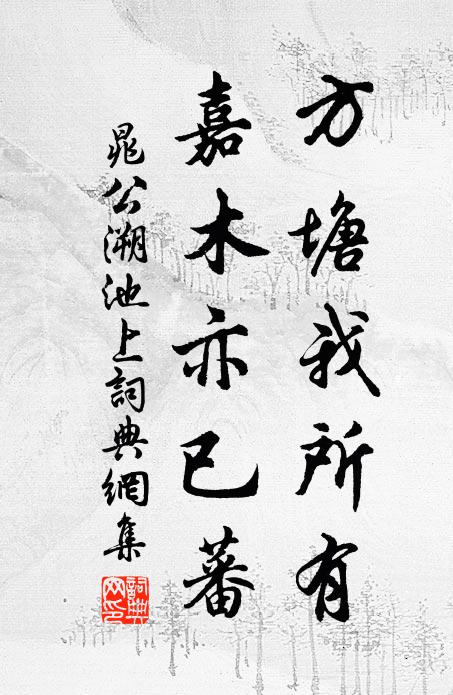 方塘我所有
嘉木亦已蕃
晁公溯池上詞典網集
詞典網印